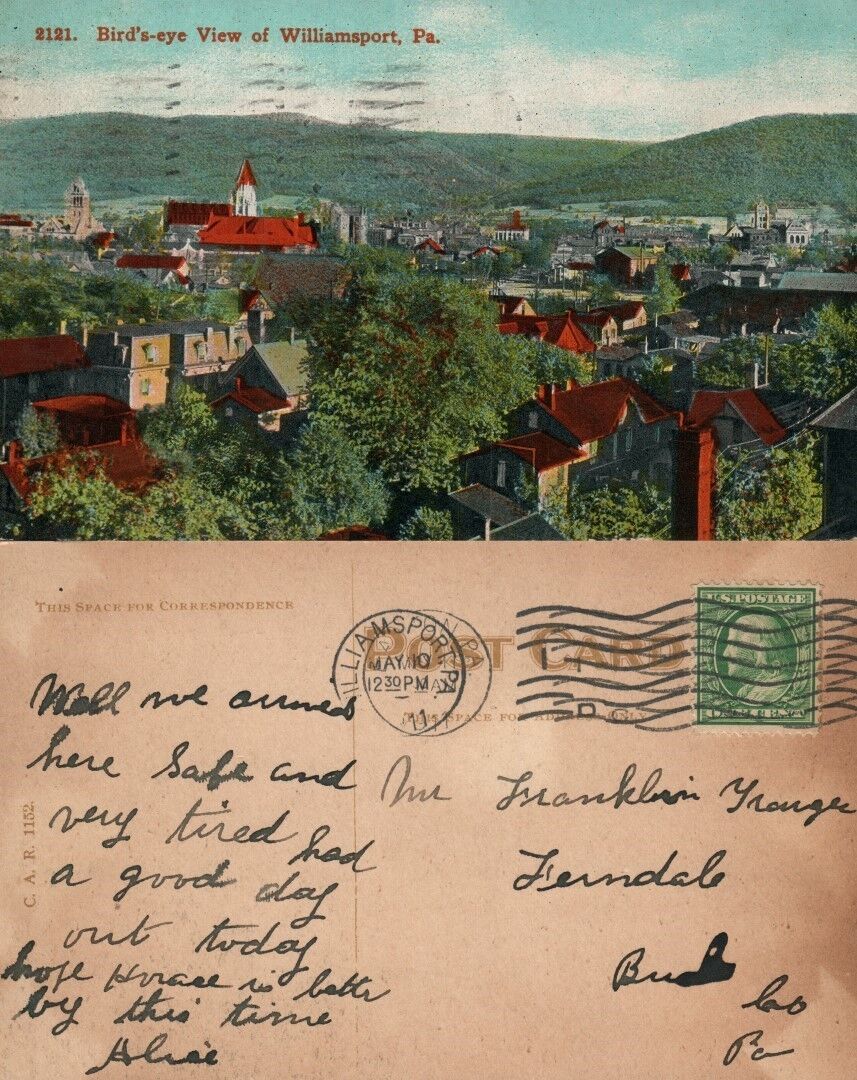 2121. Bird's-eye View of Williamsport, Pa.
THIS SPACE FOR CORRESPONDENCE
POST CARD
THIS SPACE FOR ADDRESS ONLY
WILLIAMSPORT, PA.
MAY 10
12 30 PM
11
U.S. POSTAGE
C. A. R. 1152.
Well we arrived
here safe and
very tired
had
a good day
out today
hope Horace is better
by this time
Alice
Mr Franklin Trauger
Ferndale
Buck
Co
Pa